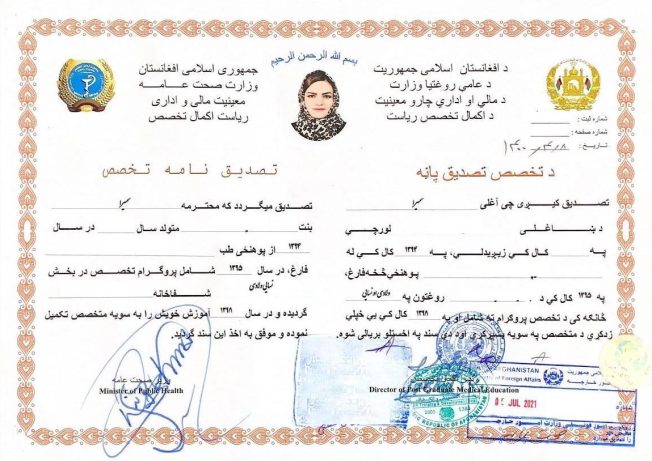 بسم الله الرحمن الرحیم
د افغانستان اسلامي جمهوریت
د عامې روغتیا وزارت
د مالي او اداري چارو معینیت
د اکمال تخصص ریاست
جمهوری اسلامی افغانستان
وزارت صحت عامه
معینیت مالی و اداری
ریاست اکمال تخصص
شماره ثبت :
شماره صفحه :
تاریخ : ۱۴۰۰/۴/۸
د تخصص تصدیق پاڼه
تصدیق کیږي چې آغلې
د ښاغلي لورچې
په کال کې زیږیدلې، په ۱۳۹۴ کال کې له
پوهنځي څخه فارغ،
په ۱۳۹۵ کال کې د روغتون په ولادي او نسایي
څانګه کې د تخصص پروګرام ته شامل او په ۱۳۹۸ کال کې یې خپلې
زدکړې د متخصص په سویه بسیړکړې اود دې سند په اخستلو بریالی شوه.
تصدیق نامه تخصص
تصدیق میگردد که محترمه
بنت متولد سال در سال
۱۳۹۴ از پوهنځی طب
فارغ، در سال ۱۳۹۵ شامل پروگرام تخصص در بخش
نسایی ولادی شفاخانه
گردیده و در سال ۱۳۹۸ آموزش خویش را به سویه متخصص تکمیل
نموده و موفق به اخذ این سند گردید.
وزیر صحت عامه
Minister of Public Health
Director of Post Graduate Medical Education
AFGHANISTAN
of Foreign Affairs
05 JUL 2021